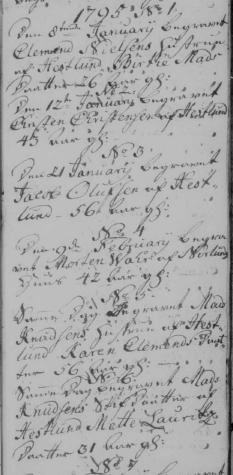 1795 No 1
Den 8tende January begravet
Clemend Nielsens Hustrue
af Hestlund Birthe Mads
Daatter 26 Aar gl:
No 2
Den 12te January begravet
Christen Christensen af Hestlund
43 Aar gl:
No 3
Den 21 January begravet
Jacob Olufsen af Hest-
lund - 56 Aar gl:
No 4
Den 9de February begra-
vet Morten af
42 Aar gl:
No 5
Samme Dag begravet Mads
Knudsens Hustrue af Hest
lund Karen Clemends Daat
ter 56 Aar gl:
No 6
Samme Dag begravet Mads
Knudsens Stifdaatter af
Hestlund Mette Lauritz
Daatter 31 Aar gl:
No 7